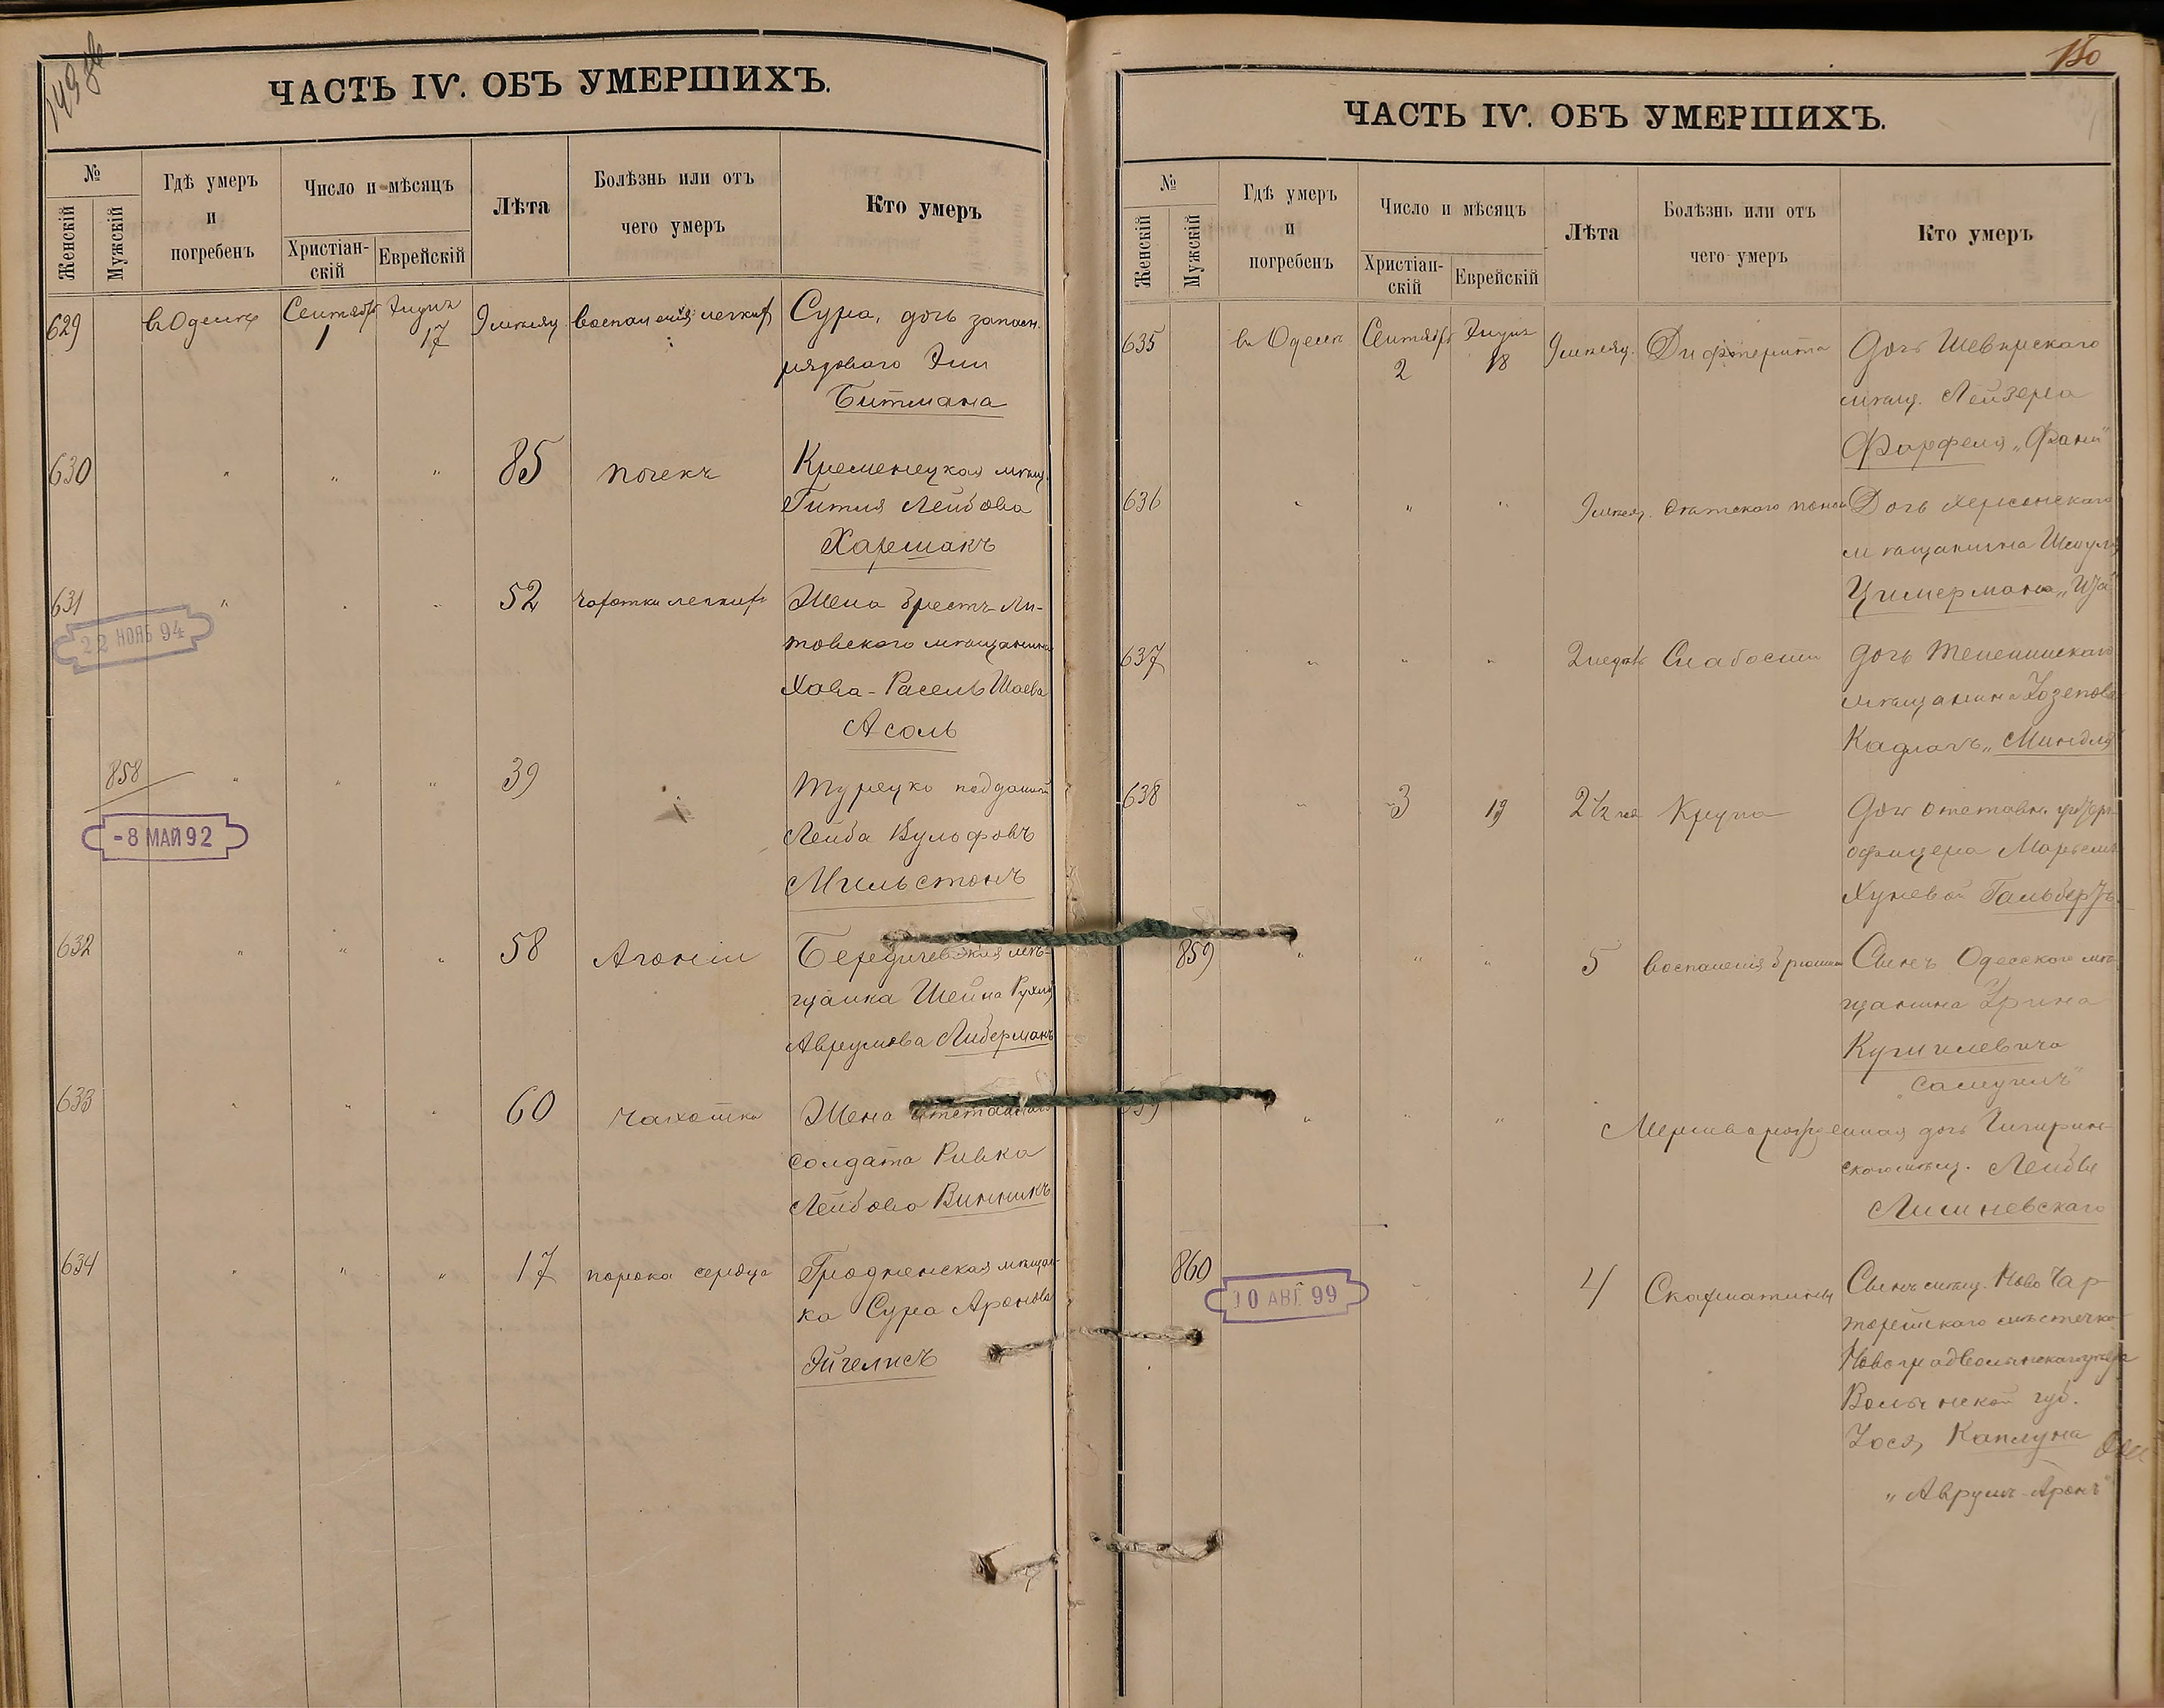 149 об
ЧАСТЬ IV. ОБЪ УМЕРШИХЪ.
№
Женскій
Мужскій
Гдѣ умеръ
и
погребенъ
Число и мѣсяцъ
Христіан-
скій
Еврейскій
Лѣта
Болѣзнь или отъ
чего умеръ
Кто умеръ
629 въ Одессѣ Сентябр 1 Элулъ 17 9 мѣсяц воспаленія легкихъ Сура, дочь запасн.
рядоваго Эли
Битмана
630 " " " 85 почекъ Кременецкая мѣщ.
Гитля Лейбова
Харшакъ
631 " " " 52 чахотки легкихъ Жена Брестъ-Ли-
товского мѣщанина
Хава-Расель Шаева
Асоль
22 НОЯБ 94
858 " " " 39 " Турецко подданый
Лейба Вульфовъ
Мильстонъ
-8 МАЙ 92
632 " " " 58 Агоніи Бердичевская мѣ-
щанка Шейна Рухля
Аврумова Либерманъ
633 " " " 60 чахотка Жена отставного
солдата Ривка
Лейбова Винникъ
634 " " " 17 порока сердца Гродненская мѣщан-
ка Сура Аронова
Эйгелисъ
150
ЧАСТЬ IV. ОБЪ УМЕРШИХЪ.
№
Женскій
Мужскій
Гдѣ умеръ
и
погребенъ
Число и мѣсяцъ
Христіан-
скій
Еврейскій
Лѣта
Болѣзнь или отъ
чего умеръ
Кто умеръ
635 въ Одессѣ Сентябр 2 Элулъ 18 9 мѣсяц. Дифтерита Дочь Шевирскаго
мѣщ. Лейзера
Фарфеля „Фани"
636 " " " 9 мѣсяц. Дочь Херсонскаго
мѣщанина Шмуля
Цимермана
637 " " " 2 недѣль Слабости дочь
мѣщанина
Кадлачъ „Миндля"
638 " 3 19 2 1/2 Крупа Дочь отставн. унтеръ-
офицера Марьемъ
Хуневой Гальберъ
859 " " " 5 воспаленія брюшины Сынъ Одесскаго мѣ-
щанина
Самуилъ"
639 " " " Мертворожденная дочь Чигирин-
скаго мѣщ. Лейбы
Лишневскаго
860 " 4 Скарлатины Сынъ мѣщ. Ново Чар-
торейскаго мѣстечка
Новоградволынскаго уѣзда
Волынской губ.
Іося Каплуна
„Аврумъ-Аронъ"
10 АВГ 99